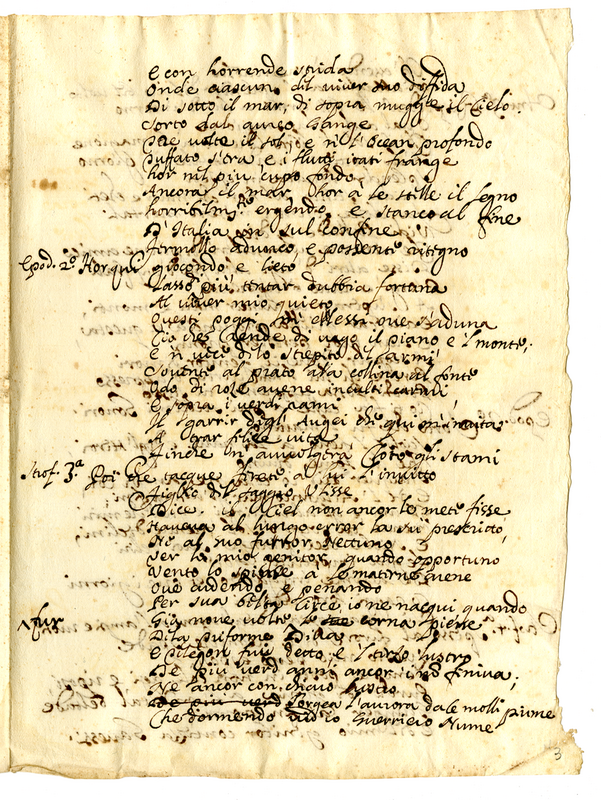 E con horrende strida
Onde ciascun del viver suo diffida
Di sotto il mar, di sopra mugge il Cielo.
Sorto dal aureo Gange
Due volte il sol e n l'Ocean profondo
tuffato s'era e i flutti irati frange
hor nel piu cupo fondo
Ancora il mar, hor a le stelle il legno
horribilm.te ergendo, e stanco al fine
D'Italia in sul confine
fermollo e possente ritegno
Epod. 2.o Hor qui giocondo e lieto
Lasso più tentar dubbia fortuna
Al viver mio quieto
Questi poggi ove s'aduna
Ciò che rende di vago il piano e 'l monte;
E n vece de lo strepito de l'armi
Sovente al prato a la collina al fonte
Odo di roze avene incolti carmi
E sopra i verdi rami
Il garrir degli Augei che qui m'invita
A trar felice vita
Finche avvolgerà Cloto gli stami
Strof. 3.a Poi che tacque, lieto al lui l'invitto
Figlio del saggio Ulisse
Dice. il Ciel non ancor le mete fisse
Haveva al lungo error la sù prescritto,
Ne al suo furror Nettuno
Per lo mio genitor, quando opportuno
Vento lo spinse a le materne arene
Ove ardendo e penando
Per sua beltà Circe, io ne nacqui quando
Già nove volte le corna piene
De la triforme Diva
E Telegon fui detto, e 'l terzo lustro
De più verd'anni ancor non finiva;
Ne ancor con chiaro lustro
De più verd Sorgea l'aurora da le molli piume
Che dormendo udi o Guerriero Nume
3